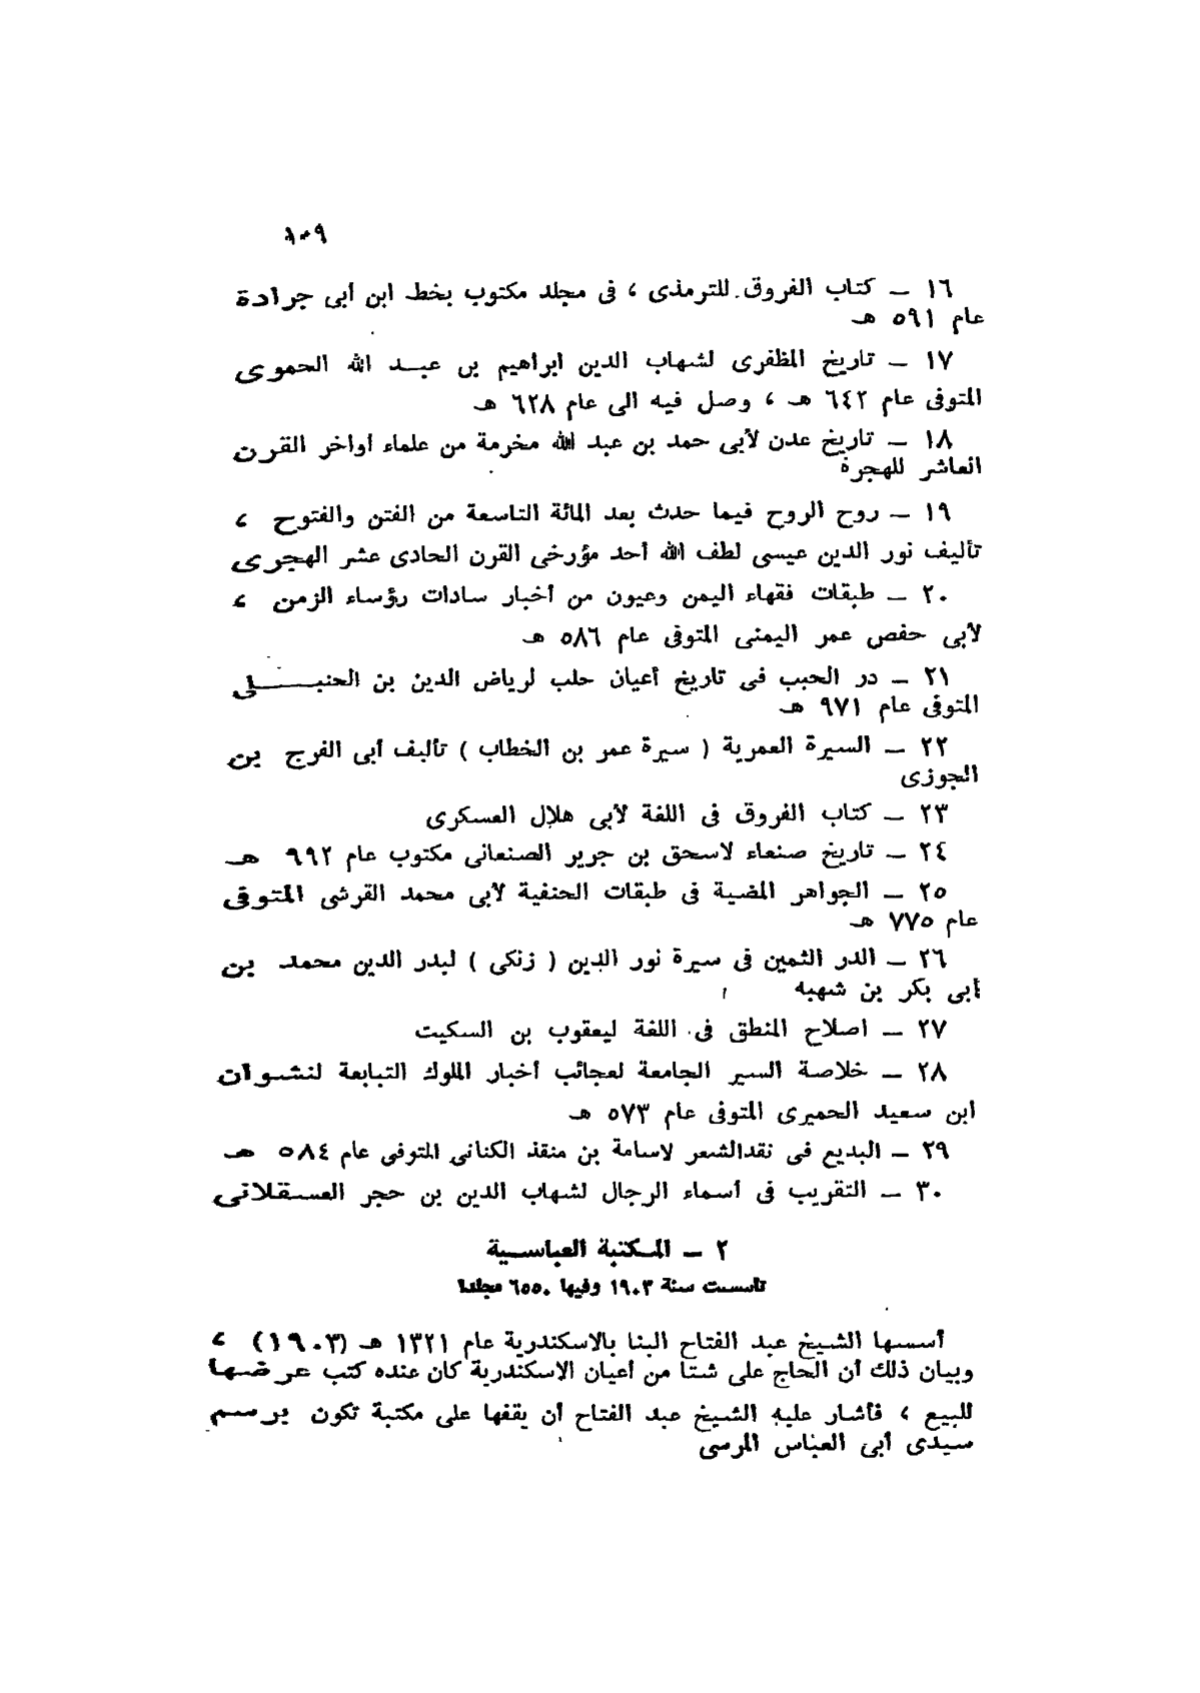 ١٠٩
١٦ — كتاب الفروق للترمذى ، فى مجلد مكتوب بخط ابن أبى جرادة
عام ٥٩١ هـ
١٧ — تاريخ المظفرى لشهاب الدين ابراهيم بن عبد الله الحموى
المتوفى عام ٦٤٢ هـ ، وصل فيه الى عام ٦٢٨ هـ
١٨ — تاريخ عدن لأبى حمد بن عبد الله مخرمة من علماء أواخر القرن
العاشر للهجرة
١٩ — روح الروح فيما حدث بعد المائة التاسعة من الفتن والفتوح ،
تأليف نور الدين عيسى لطف الله أحد مؤرخى القرن الحادى عشر الهجرى
٢٠ — طبقات فقهاء اليمن وعيون من أخبار سادات رؤساء الزمن ،
لأبى حفص عمر اليمنى المتوفى عام ٥٨٦ هـ
٢١ — در الحبب فى تاريخ أعيان حلب لرياض الدين بن الحنبلى
المتوفى عام ٩٧١ هـ
٢٢ — السيرة العمرية ( سيرة عمر بن الخطاب ) تأليف أبى الفرج بن
الجوزى
٢٣ — كتاب الفروق فى اللغة لأبى هلال العسكرى
٢٤ — تاريخ صنعاء لاسحق بن جرير الصنعانى مكتوب عام ٩٩٢ هـ
٢٥ — الجواهر المضية فى طبقات الحنفية لأبى محمد القرشى المتوفى
عام ٧٧٥ هـ
٢٦ — الدر الثمين فى سيرة نور الدين ( زنكى ) لبدر الدين محمد بن
أبى بكر بن شهبه
٢٧ — اصلاح المنطق فى اللغة ليعقوب بن السكيت
٢٨ — خلاصة السير الجامعة لعجائب أخبار الملوك التبابعة لنشوان
ابن سعيد الحميرى المتوفى عام ٥٧٣ هـ
٢٩ — البديع فى نقدالشعر لاسامة بن منقذ الكنانى المتوفى عام ٥٨٤ هـ
٣٠ — التقريب فى أسماء الرجال لشهاب الدين بن حجر العسقلانى
٢ — المكتبة العباسية
تأسست سنة ١٩٠٣ وفيها ٦٥٥٠ مجلدا
أسسها الشيخ عبد الفتاح البنا بالاسكندرية عام ١٣٢١ هـ (١٩٠٣) ،
وبيان ذلك أن الحاج على شتا من أعيان الاسكندرية كان عنده كتب عرضها
للبيع ، فأشار عليه الشيخ عبد الفتاح أن يقفها على مكتبة تكون برسم
سيدى أبى العباس المرسى